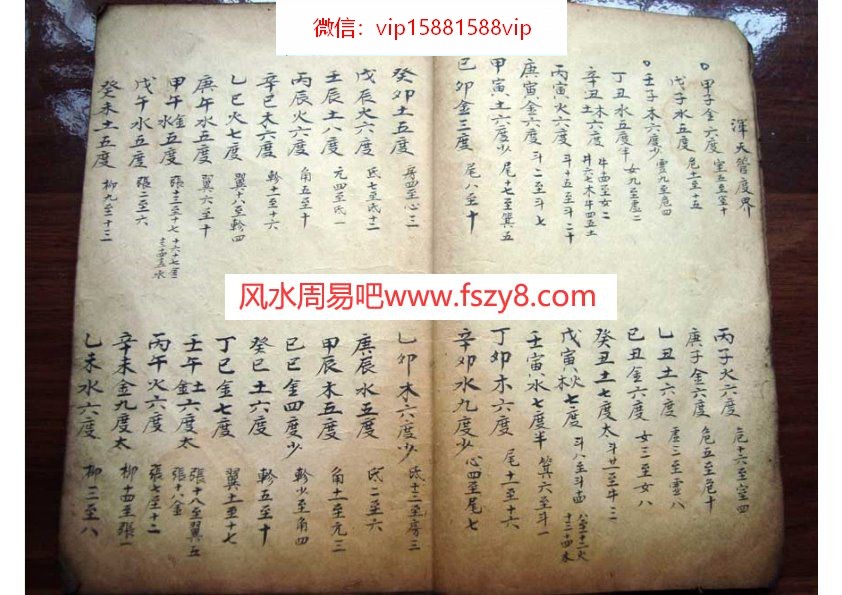 微信：vip15881588vip
渾天管度界
甲子金六度 室五至室十
丙子火六度 危十六至室四
戊子水五度 危十一至十五
庚子金六度 危五至危十
壬子木六度少 虚九至危四
乙丑土六度 虚三至虚八
丁丑水五度半 女九至虚二
己丑金六度 女三至女八
辛丑土木六度 牛四至女二 牛六七木牛四五土
癸丑土七度太 斗廿一至牛三
丙寅火六度 斗十五至斗二十
戊寅火木七度 斗八至斗十四 八至十二火 十三十四木
庚寅金六度 斗二至斗七
壬寅水七度半 箕六至斗一
甲寅土六度 尾十七至箕五
丁卯木六度 尾十一至十六
己卯金三度 尾八至十
辛卯水九度少 心四至尾七
癸卯土五度 房四至心三
乙卯木六度少 氐十三至房三
戊辰火六度 氐七至氐十二
庚辰水五度 氐二至六
壬辰土八度 元四至氐一
甲辰木五度 角十一至元三
丙辰火六度 角五至十
己巳金四度少 軫少至角四
辛巳木六度 軫十一至十六
癸巳土六度 軫五至十
乙巳火七度 翼十八至軫四
丁巳金七度 翼十一至十七
庚午水五度 翼六至十
壬午土金六度太 張十八至翼五 張十八金
甲午金水六度 張十三至十七 十六十七金 十三十四十五水
丙午火六度 張七至十二
戊午水五度 張二至六
辛未金九度太 柳十四至張一
癸未土五度 柳九至十三
乙未水六度 柳三至八
风水周易吧www.fszy8.com